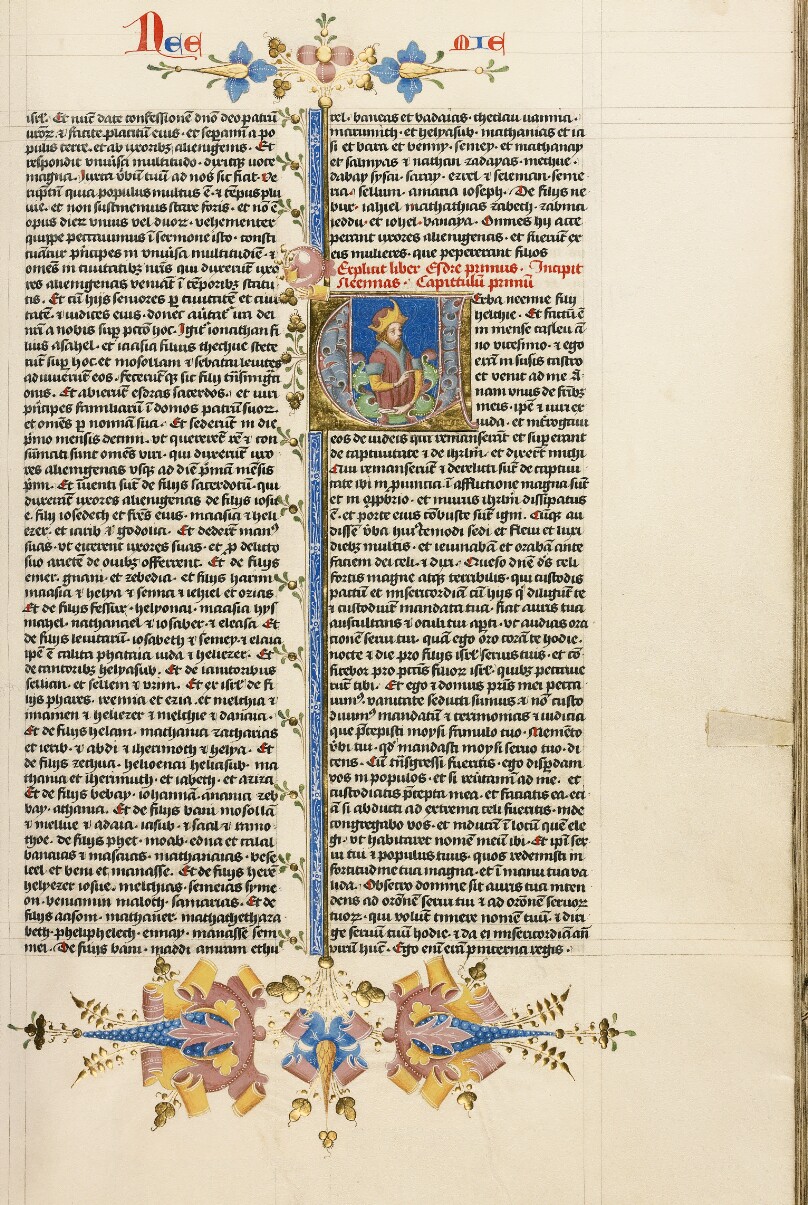 Nee mie
isrl'. Et nūc date confessionē dn̄o deo patrū
uroꝝ. ⁊ facite placitū eius. et separamī a po
pulis terre. et ab uxoribꝫ alienigenis. Et
respondit vniūsa multitudo. dixitqꝫ uoce
magna. Iuxta v̄bū tuū ad nos sic fiat. Ve
rūptn̄ quia populus multus ē. ⁊ tēpus plu
uie. et non sustinemus stare foris. et nō ē
opus diei vnius vel duoꝝ. vehementer
quippe peccauimus ī sermone isto. consti
tuātur prīcipes in vniūsa multitudīe. ⁊
omēs in ciuitatibꝫ nr̄is qui duxerūt uxo
res alienigenas veniāt ī tēporibꝫ statu
tis. Et cū hijs seniores ꝑ ciuitatē et ciui
tatē. ⁊ iudices eius. donec au̅tat̄ ira dei
nr̄i a nobis suꝑ pctō hoc. Igit̄ ionathan fi
lius asahel. et iaasia filius thechue stete
rūt suꝑ hoc. et mosollam ⁊ sebatai leuites
adiuuerūt eos. fecerūtqꝫ sic filij trānsmigrati
onis. Et abierūt esdras sacerdos. et uiri
prīcipes familiarū ī domos patrū suoꝝ.
et omēs ꝑ nomīa sua. Et sederūt in die
pīmo mensis decimi. vt quererēt rē ⁊ con
sūmati sunt omēs viri. qui duxerūt uxo
res alienigenas vsqꝫ ad diē pīmā mēsis
pīmi. Et īuenti sūt de filijs sacerdotū. qui
duxerūt uxores alienigenas de filijs iosu
e. filij iosedech et frēs eius. maasia ⁊ heli
ezer. et iarib ⁊ godolia. Et dederūt man⁹
suas. vt eicerent uxores suas. et ꝓ delicto
suo arietē de ouibꝫ offerrent. Et de filijs
emer. gnani. et zebedia. et filijs harim
maasia ⁊ helya ⁊ semeia ⁊ iehiel et ozias.
Et de filijs fessur. helyonai. maasia hys
mahel. nathanael ⁊ iosabet. ⁊ eleasa. Et
de filijs leuitarū. iosabeth ⁊ semey. ⁊ elaia
ipē ē calita phataia iuda ⁊ heliezer. Et
de cantoribꝫ helyasub. Et de ianitoribus
sellum. et sellem ⁊ vrim. Et ex isrl' de fi
lijs phares. remia et ezia. et melchia ⁊
miamen ⁊ heliezer ⁊ melchie ⁊ danaia.
Et de filijs helam. mathania zacharias
et ierib ⁊ abdi ⁊ iherimoth ⁊ helya. Et
de filijs zethua. helioenai heliasub. ma
thania et iherimuth. et iabeth. et aziza.
Et de filijs bebay. iohannā. anania zeb
bay. athania. Et de filijs bani mosollā
⁊ melluc ⁊ adaia. iasub. ⁊ saal ⁊ ramo
thoe. de filijs phet. moab. edna et calal
banaias ⁊ maasias. mathanaias. bese
leel et beni et manasse. Et de filijs herē
helyezer iosue. melchias. semeias syme
on. beniamin maloth. samarias. Et de
filijs aasom. mathanet. mathathethaza
beth. pheliphelech. ermay. manassē sem
mei. De filijs bani. maddi amram ethu
rel. baneas et badaias. cheiliau uannia.
marimuth. et helyasub. mathanias et ia
si et bara et benny. semey. et mathanay
et salmyas ⁊ nathan zadayas. mechne
dabay sysai. saray. ezrel ⁊ selemian. seme
ria. sellum. amaria ioseph. De filijs ne
bur. iahiel mathathias zabeth. zabina
ieddu. et iohel. banaya. Omnes hij acce
perant uxores alienigenas. et fuerūt ex
eis mulieres. que pepererant filios
Explicit liber Esdre primus. Incipit
Neemias. Capitulū primū
Verba neemie filij
helchie. Et factū ē
in mense casleu ā
no vicesimo. ⁊ ego
erā in susis castro
et venit ad me A
nani vnus de fribꝫ
meis. ipē ⁊ uiri ex
iuda. et intrrogaui
eos de iudeis qui remanserāt. et suꝑerant
de captiuitate ⁊ de ihrlm̄. et dixerūt michi
Qui remanserūt ⁊ derelicti sūt de captiui
tate ibi in puincia. ī afflictione magna sūt
et in oꝓpbrio. et murus ihrlm̄ dissipatus
ē. et porte eius cōbuste sūt igni. Cūqꝫ au
dissē v̄ba huiꝰcemodi sedi et fleui et luxi
diebꝫ multis. et ieiunabā et orabā ante
faciem dei celi. ⁊ dixi. Queso dn̄e dꝰs celi
fortis magne atqꝫ terribilis. qui custodis
pactū et misericordiā cū hijs q̄ diligūt te
⁊ custodiūt mandata tua. fiat auris tua
auscultans ⁊ oculi tui apti. vt audias ora
tionē serui tui. quā ego oro corā te hodie.
nocte ⁊ die pro filijs isrl' seruis tuis. et cō
fiteor pro pctīs filioꝝ isrl'. quibꝫ peccaue
rūt tibi. Et ego ⁊ domus pr̄is mei pecca
uim⁹. vanitate seducti sumus ⁊ nō custo
diuim⁹ mandatū ⁊ cerimonias ⁊ iudicia
que p̄cepisti moysi famulo tuo. Memēto
v̄bi tui. qd̄ mandasti moysi seruo tuo. di
cens. Cū trāsgressi fueritis. ego disꝑdam
vos in populos. et si reūtamī ad me. et
custodiatis p̄cepta mea. et faciatis ea. eci
ā si abducti ad extrema celi fueritis. inde
congregabo vos. et inducā ī locū quē ele
gi. vt habitaret nomē meū ibi. Et ipsi ser
ui tui ⁊ populus tuus. quos redemisti in
fortitudine tua magna. et ī manu tua va
lida. Obsecro domine sit auris tua inten
dens ad orōnē serui tui ⁊ ad orōnē seruoꝝ
tuoꝝ. qui volūt timere nomē tuū. ⁊ diri
ge seruū tuū hodie. ⁊ da ei misericordiā añ
virū hūc. Ego enī erā pincerna regis.